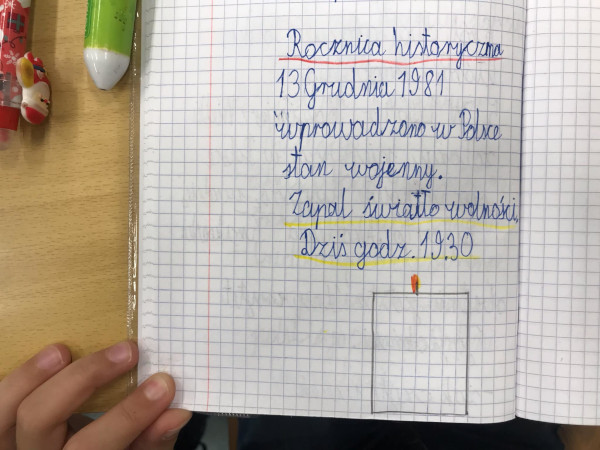 Rocznica historyczna
13 Grudnia 1981
wprowadzono w Polsce
stan wojenny.
Zapal światło wolności,
Dziś godz. 19.30